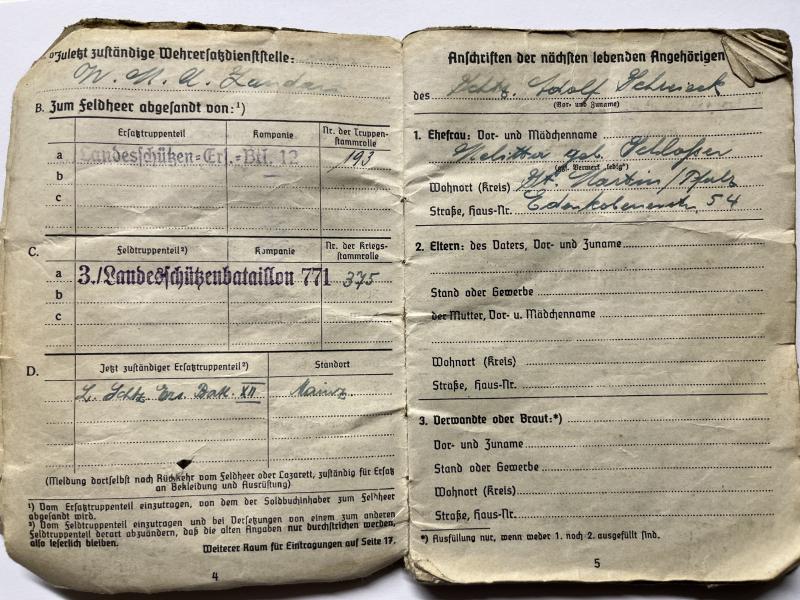 Zuletzt zuständige Wehrersatzdienststelle:
W. M. A. Landau
B. Zum Feldheer abgesandt von:¹)
Ersatztruppenteil Kompanie Nr. der Truppenstammrolle
a Landesschützen-Ers.-Btl. 12 193
b
c
C. Feldtruppenteil²) Kompanie Nr. der Kriegsstammrolle
a 3./Landesschützenbataillon 771 375
b
c
D. Jetzt zuständiger Ersatztruppenteil²) Standort
L. Schtz. Ers. Batl. XII Mainz
(Meldung dortselbst nach Rückkehr vom Feldheer oder Lazarett, zuständig für Ersatz
an Bekleidung und Ausrüstung)
¹) Vom Ersatztruppenteil einzutragen, von dem der Soldbuchinhaber zum Feldheer
abgesandt wird.
²) Vom Feldtruppenteil einzutragen und bei Versetzungen von einem zum anderen
Feldtruppenteil derart abzuändern, daß die alten Angaben nur durchstrichen werden,
also leserlich bleiben.
Weiterer Raum für Eintragungen auf Seite 17.
4
Anschriften der nächsten lebenden Angehörigen
des Schtz. Adolf
(Vor- und Zuname)
1. Ehefrau: Vor- und Mädchenname
Melitta geb. Schloßer
(ggf. Vermerk „ledig“)
Wohnort (Kreis) St. Martin/Pfalz
Straße, Haus-Nr. Edenkobenerstr. 54
2. Eltern: des Vaters, Vor- und Zuname
Stand oder Gewerbe
der Mutter, Vor- u. Mädchenname
Wohnort (Kreis)
Straße, Haus-Nr.
3. Verwandte oder Braut:*)
Vor- und Zuname
Stand oder Gewerbe
Wohnort (Kreis)
Straße, Haus-Nr.
*) Ausfüllung nur, wenn weder 1. noch 2. ausgefüllt sind.
5